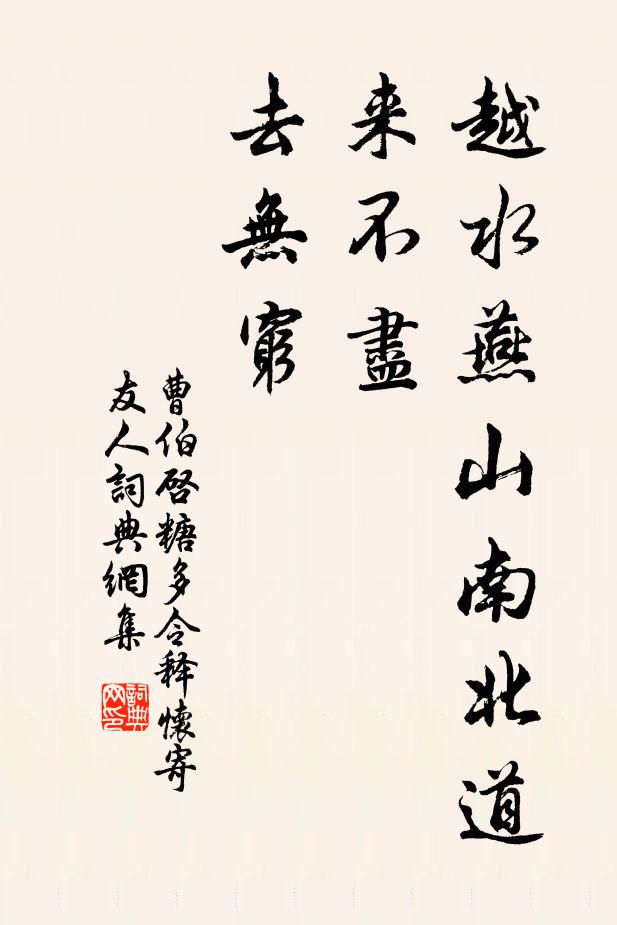 越水燕山南北道
来不盡
去無窮
曹伯啓糖多令释懷寄
友人詞典網集
詞典
网印